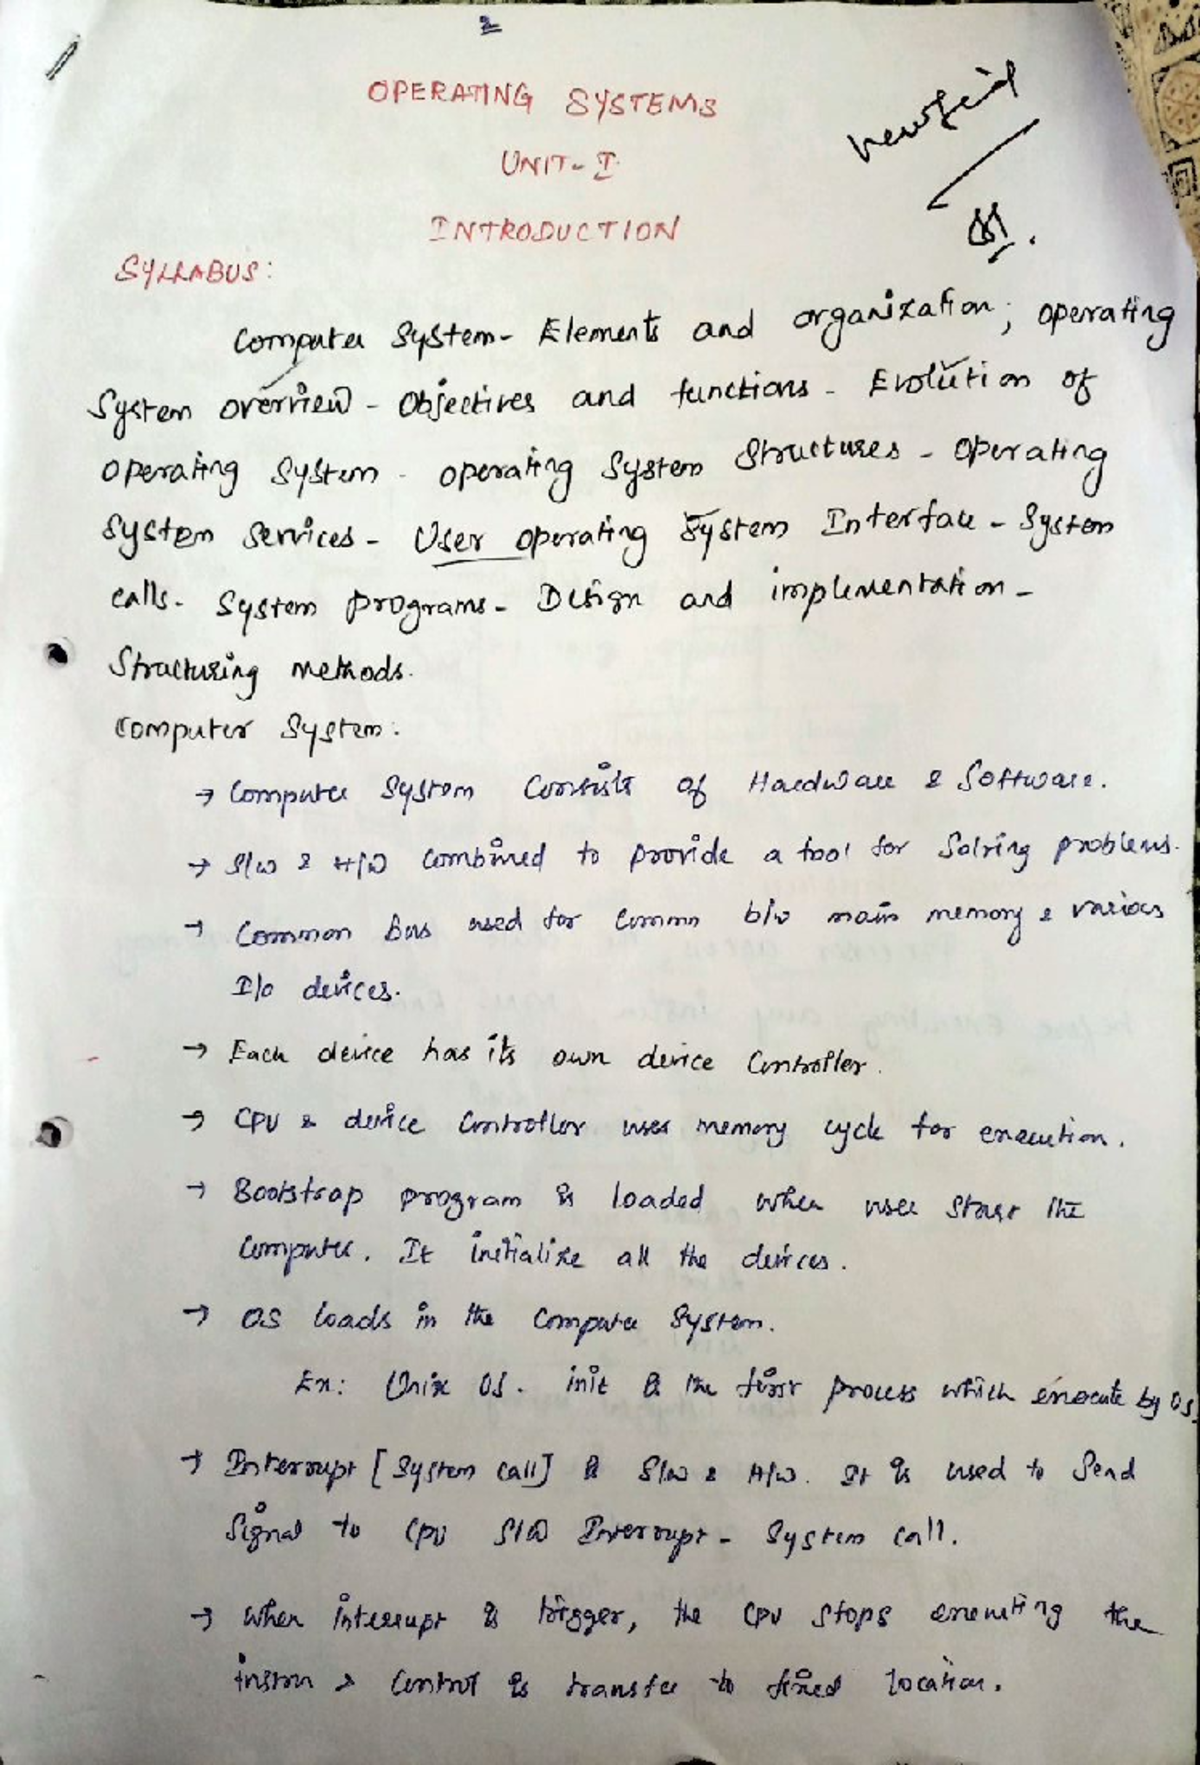 2
OPERATING SYSTEMS
UNIT-I
INTRODUCTION
SYLLABUS:
Computer System- Elements and organization; operating
System overview - Objectives and functions - Evolution of
operating System - operating System Structures - Operating
System Services - User operating System Interface - System
calls- System programs - Design and implementation -
Structuring methods.
Computer System:
→ Computer System Consists of Hardware & Software.
→ S/W & H/W Combined to provide a tool for Solving problems.
→ Common bus used for Commn b/w main memory & various
I/O devices.
→ Each device has its own device Controller.
→ CPU & device Controller uses memory cycle for execution.
→ Bootstrap program is loaded when user start the
Computer. It initialize all the devices.
→ OS loads in the Computer System.
Ex: Unix OS. init is the first process which execute by OS.
→ Interrupt [System Call] is S/W & H/W. It is used to Send
Signal to CPU S/W Interrupt - System Call.
→ When interrupt is trigger, the CPU Stops executing the
instrn & Control is transfer to fixed location.